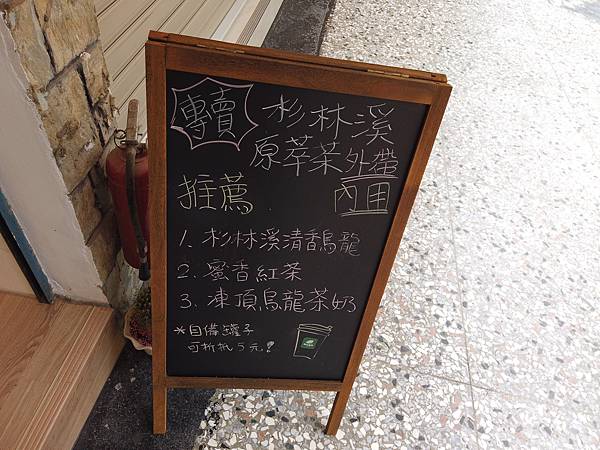 專賣 杉林溪
原萃茶 外帶
內用
推薦
1. 杉林溪清香烏龍
2. 蜜香紅茶
3. 凍頂烏龍茶奶
*自備罐子
可折抵5元!